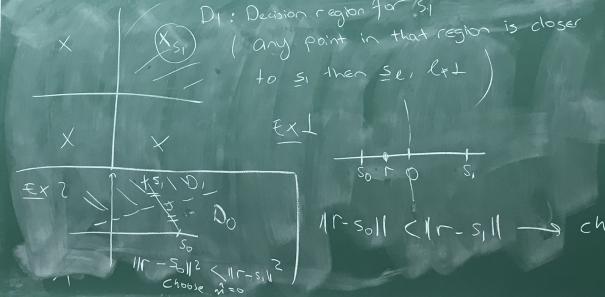 D₁: Decision region for s₁
( any point in that region is closer
to s₁ then sₑ, l≠1 )
X
X s₁
X
X
Ex 1
s₀ r 0 s₁
||r-s₀|| < ||r-s₁|| → ch
Ex 2
x s₁ D₁
D₀
s₀
||r-s₀||² < ||r-s₁||²
choose m̂=0